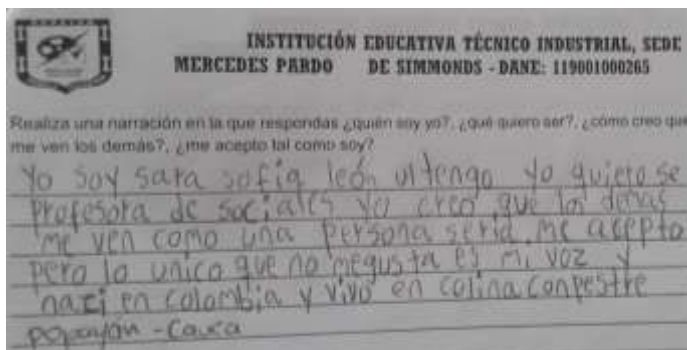 INSTITUCIÓN EDUCATIVA TÉCNICO INDUSTRIAL, SEDE
MERCEDES PARDO DE SIMMONDS - DANE: 119001000265
Realiza una narración en la que respondas ¿quién soy yo?, ¿qué quiero ser?, ¿cómo creo que
me ven los demás?, ¿me acepto tal como soy?
Yo soy sara sofia león ultengo yo quiero se
profesora de sociales yo creo que los demas
me ven como una persona seria, me acepto
pero lo unico que no megusta es mi voz y
naci en colombia y vivo en colina conpestre
popayán - Cauca